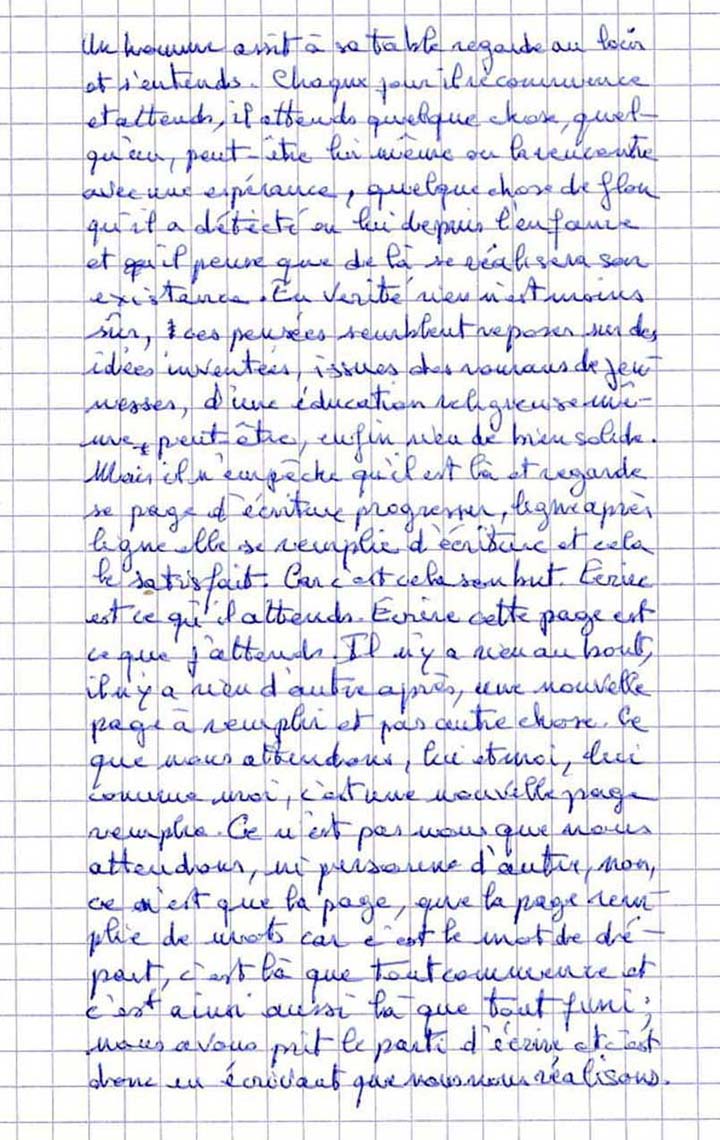 Un homme assit à sa table regarde au loin
et s'entends. Chaque jour il recommence
et attends, il attends quelque chose, quel-
qu'un, peut-être lui même ou la rencontre
avec une espérance, quelque chose de flou
qu'il a détecté en lui depuis l'enfance
et qu'il pense que de là se réalisera son
existence. En vérité rien n'est moins
sûr, ces pensées semblent reposer sur des
idées inventées, issues des romans de jeu-
nesses, d'une éducation religieuse mê-
me, peut-être, enfin rien de bien solide.
Mais il n'empêche qu'il est là et regarde
se page d'écriture progresser, ligne après
ligne elle se remplie d'écriture et cela
le satisfait. Car c'est cela son but. Ecrire
est ce qu'il attends. Ecrire cette page est
ce que j'attends. Il n'y a rien au bout,
il n'y a rien d'autre après, une nouvelle
page à remplir et pas autre chose. Ce
que nous attendons, lui et moi, lui
comme moi, c'est une nouvelle page
remplie. Ce n'est pas nous que nous
attendons, ni personne d'autre, non,
ce n'est que la page, que la page rem-
plie de mots car c'est le mot de dé-
part, c'est là que tout commence et
c'est ainsi aussi là que tout fini;
nous avons prit le parti d'écrire et c'est
donc en écrivant que nous nous réalisons.